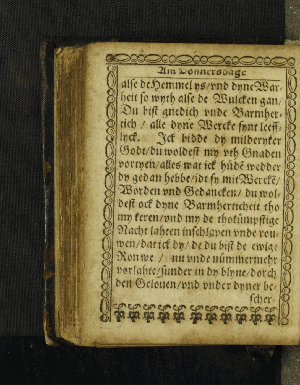 Am Donnersdage
alse de Hemmel ys/vnd dyne War-
heit so wyth alse de Wulcken gan/
Du bist gnedich vnde Barmher-
tich / alle dyne Wercke synt leeff-
lyck. Ick bidde dy mildernker
Godt/du woldest my vth Gnaden
vorgeuen/alles wat ick hüdē wedder
dy gedan hebbe/idt sy mit Werckē/
Worden vnd Gedancken/ du wol-
dest ock dyne Barmherticheit tho
my keren/vnd my de thokümpstige
Nacht lathen inschlapen vnde rou-
wen/dat ick dy/ de du bist de ewige
Rouwe / nu vnde nümmermehr
vorlathe/sunder in dy blyue/dorch
den Gelouen/vnd vnder dyner be-
scher-